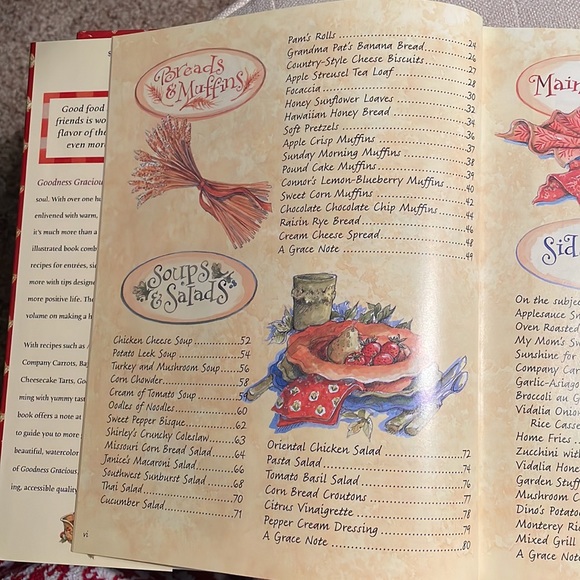 Good food
friends is wo
flavor of the
even more
Goodness Gracious
soul. With over one hu
enlivened with warm,
it's much more than a
illustrated book comb
recipes for entrées, sid
more with tips designed
more positive life. The
volume on making a h
With recipes such as
Company Carrots, Ba
Cheesecake Tarts, Go
ming with yummy tast
book offers a note at
to guide you to more
beautiful, watercolor
of Goodness Gracious
ing, accessible quality
Breads
& Muffins
Pam's Rolls 24
Grandma Pat's Banana Bread 26
Country-Style Cheese Biscuits 27
Apple Streusel Tea Loaf 28
Focaccia 30
Honey Sunflower Loaves 32
Hawaiian Honey Bread 34
Soft Pretzels 36
Apple Crisp Muffins 37
Sunday Morning Muffins 38
Pound Cake Muffins 39
Connor's Lemon-Blueberry Muffins 40
Sweet Corn Muffins 42
Chocolate Chocolate Chip Muffins 44
Raisin Rye Bread 46
Cream Cheese Spread 48
A Grace Note 49
Soups
& Salads
Chicken Cheese Soup 52
Potato Leek Soup 54
Turkey and Mushroom Soup 56
Corn Chowder 58
Cream of Tomato Soup 59
Oodles of Noodles 60
Sweet Pepper Bisque 62
Shirley's Crunchy Coleslaw 63
Missouri Corn Bread Salad 64
Janice's Macaroni Salad 66
Southwest Sunburst Salad 68
Thai Salad 70
Cucumber Salad 71
Oriental Chicken Salad 72
Pasta Salad 74
Tomato Basil Salad 76
Corn Bread Croutons 77
Citrus Vinaigrette 78
Pepper Cream Dressing 79
A Grace Note 80
vi
Main
Sid
On the subjec
Applesauce Sn
Oven Roasted
My Mom's Sw
Sunshine for
Company Car
Garlic-Asiago
Broccoli au G
Vidalia Onion
Rice Casse
Home Fries
Zucchini with
Vidalia Honey
Garden Stuff
Mushroom C
Dino's Potato
Monterey Ric
Mixed Grill
A Grace Note